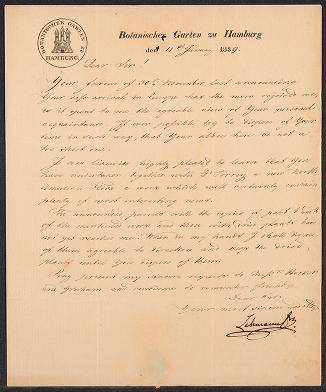 BOTANISCHER GARTEN ZU
HAMBURG.
Botanischer Garten zu Hamburg
den 11th January 1839.
Dear Sir!
Your favour of 30th November last announcing
Your safe arrival in Europe has the more rejoiced me,
as it gives to me the agreable view of Your personal
acquaintance. If ever possible try to dispose of Your
time in such way, that Your abode here be not a
too short one.
I am likewise highly pleased to learn that You
have undertaken together with Dr Torrey a new North
American Flora a work which will certainly contain
plenty of most interesting
The announced parcel with the of part 1 and 2
of the mentioned work and then with dried plants has
not yet reached me. When in my hands I shall dispose
of them agreable to direction and keep the dried
plants until You dispose of them.
Pray present my sincere regards to Messrs Hooker
and Graham and continue to remember friendly
Dear Sir
Your most sincere
Lehmann